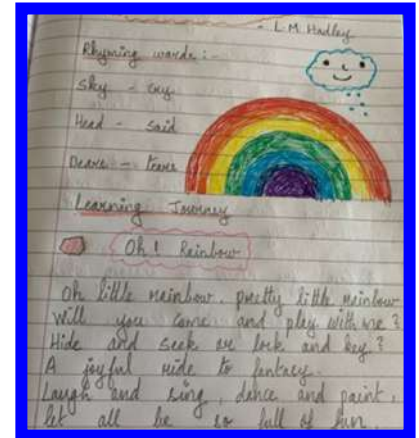 - L M Hadley
Rhyming words :-
Sky - cry
Head - said
Deare - teare
Learning Journey
Oh ! Rainbow
Oh little rainbow, pretty little rainbow
Will you come and play with me ?
Hide and seek or lock and key ?
A joyful ride to fantasy.
Laugh and sing, dance and paint,
let all be so full of fun,